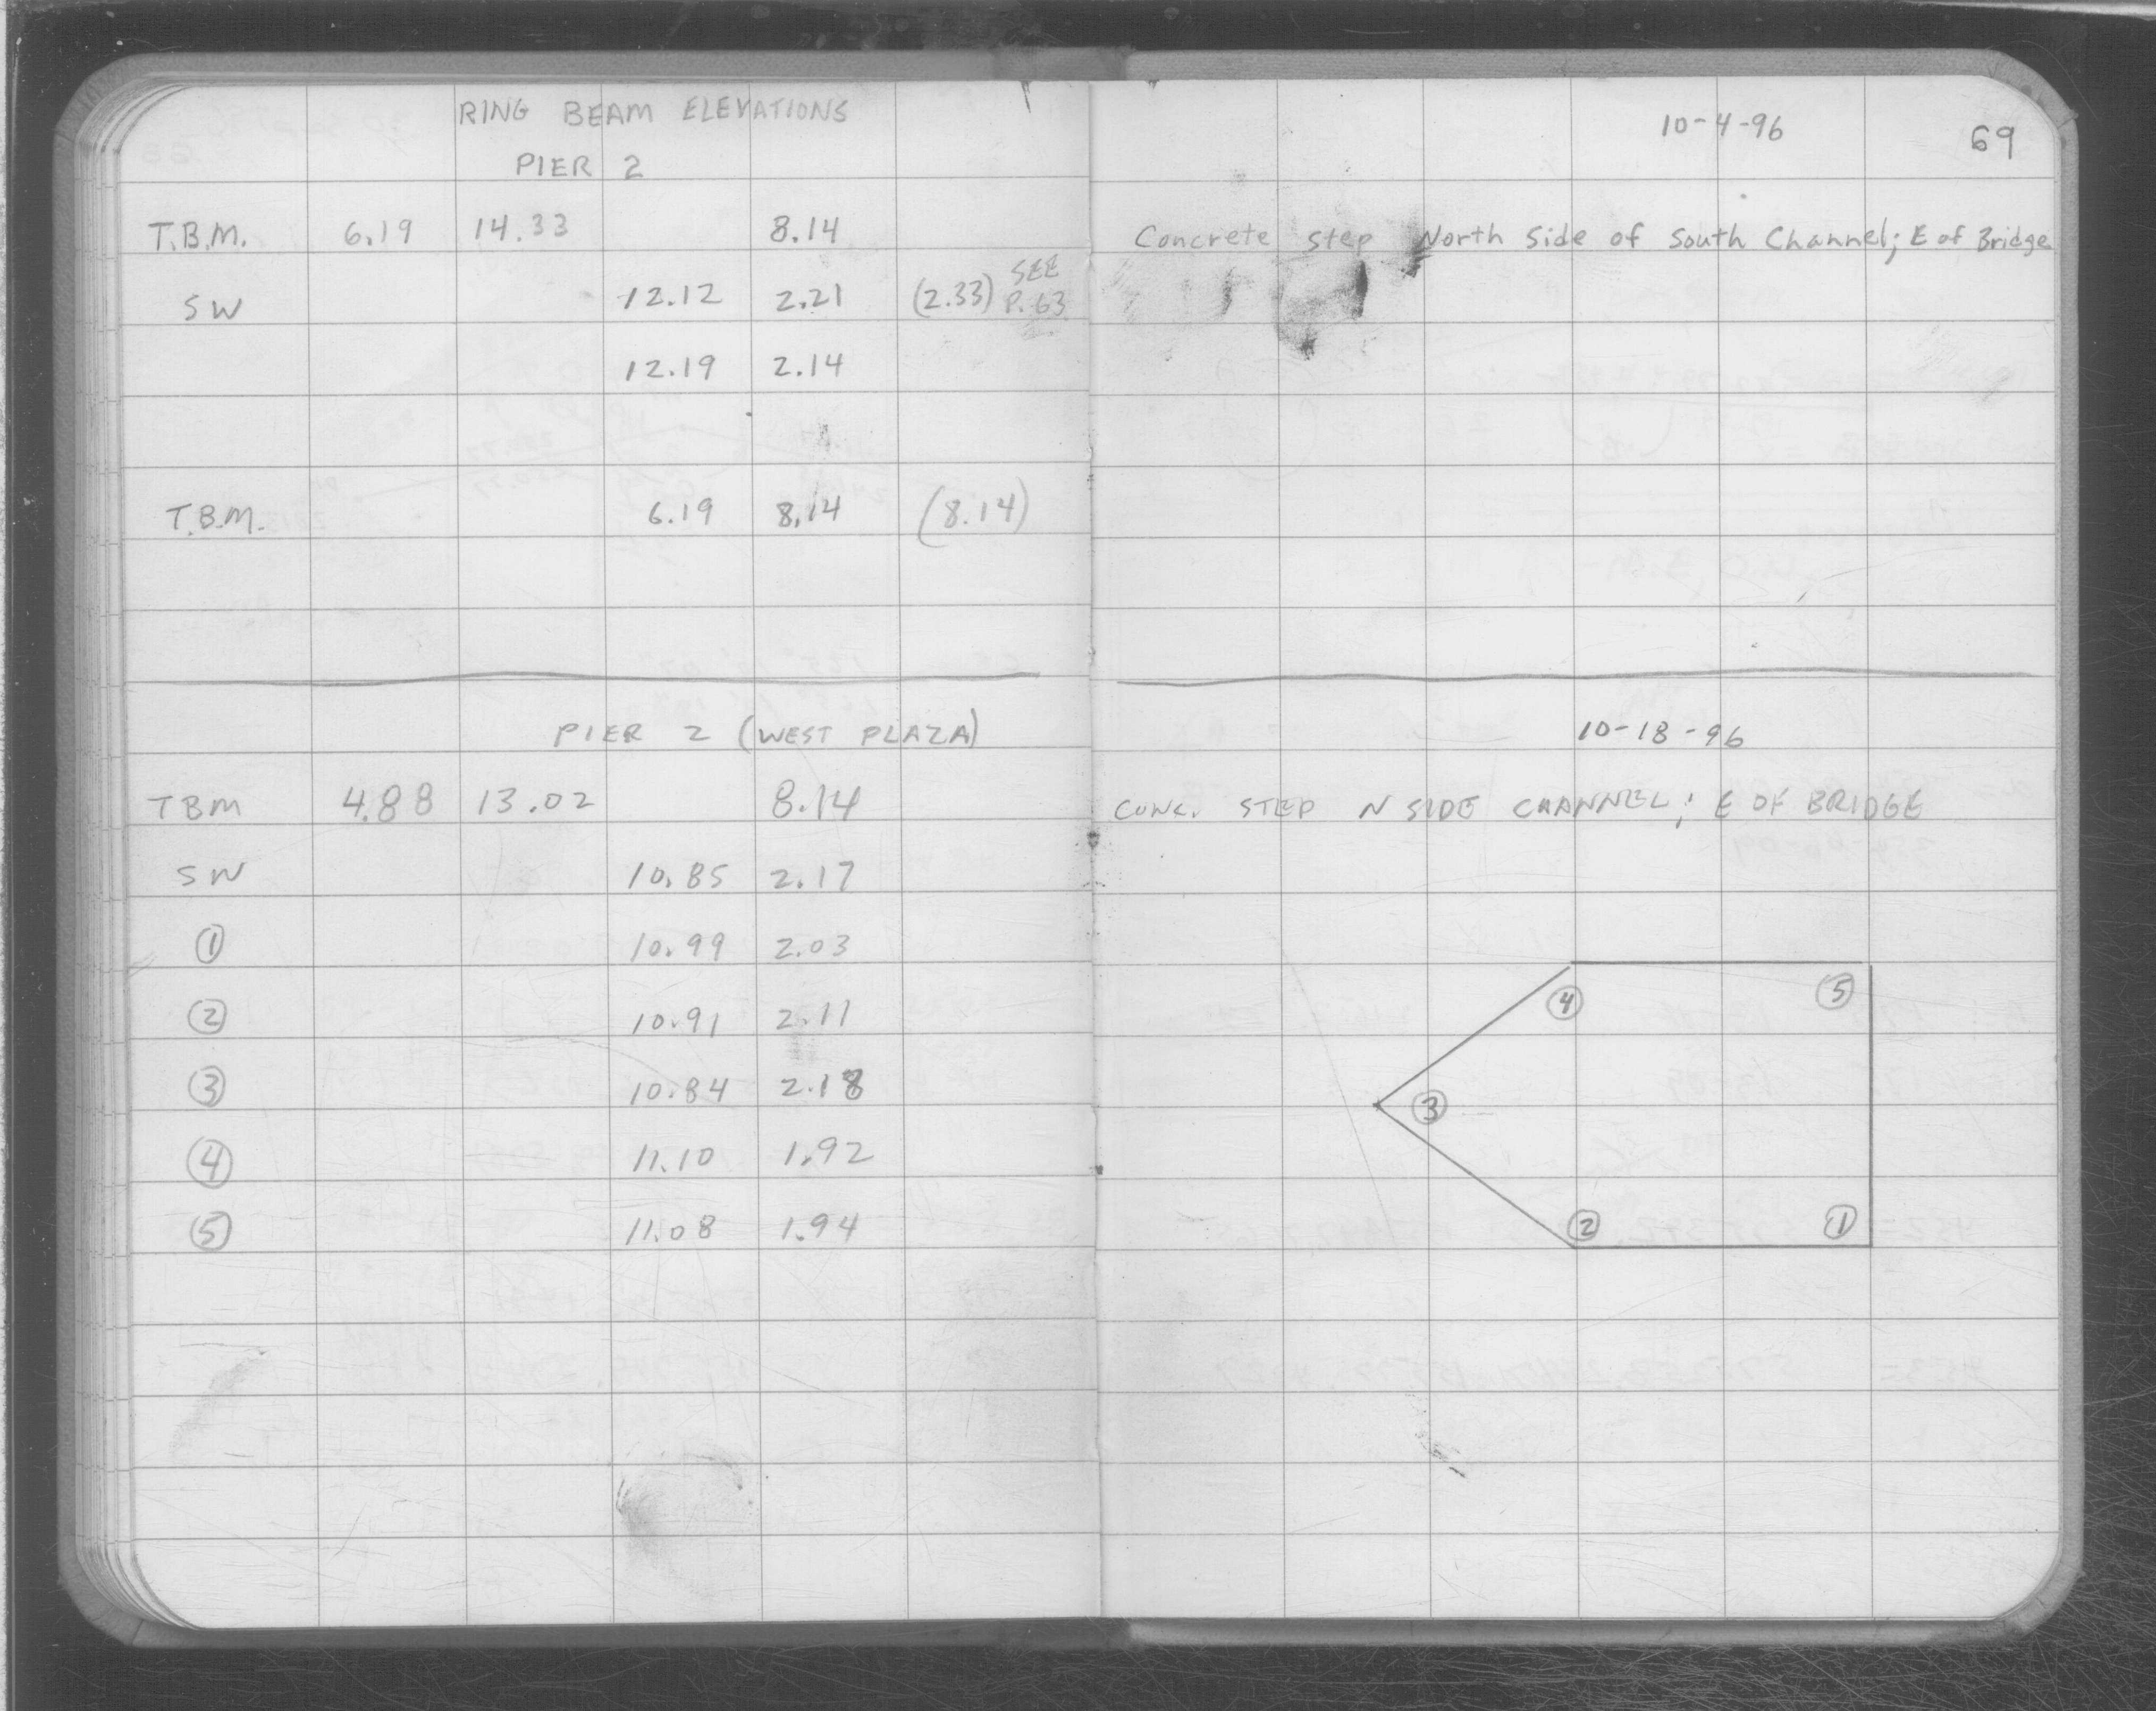 RING BEAM ELEVATIONS
PIER 2
T.B.M. 6.19 14.33 8.14
SW 12.12 2.21 (2.33) SEE P. 63
12.19 2.14
T.B.M. 6.19 8.14 (8.14)
PIER 2 (WEST PLAZA)
TBM 4.88 13.02 8.14
SW 10.85 2.17
① 10.99 2.03
② 10.91 2.11
③ 10.84 2.18
④ 11.10 1.92
⑤ 11.08 1.94
10-4-96 69
Concrete step North Side of South Channel; E of Bridge
10-18-96
CONC. STEP N SIDE CHANNEL; E OF BRIDGE
④ ⑤
③
② ①